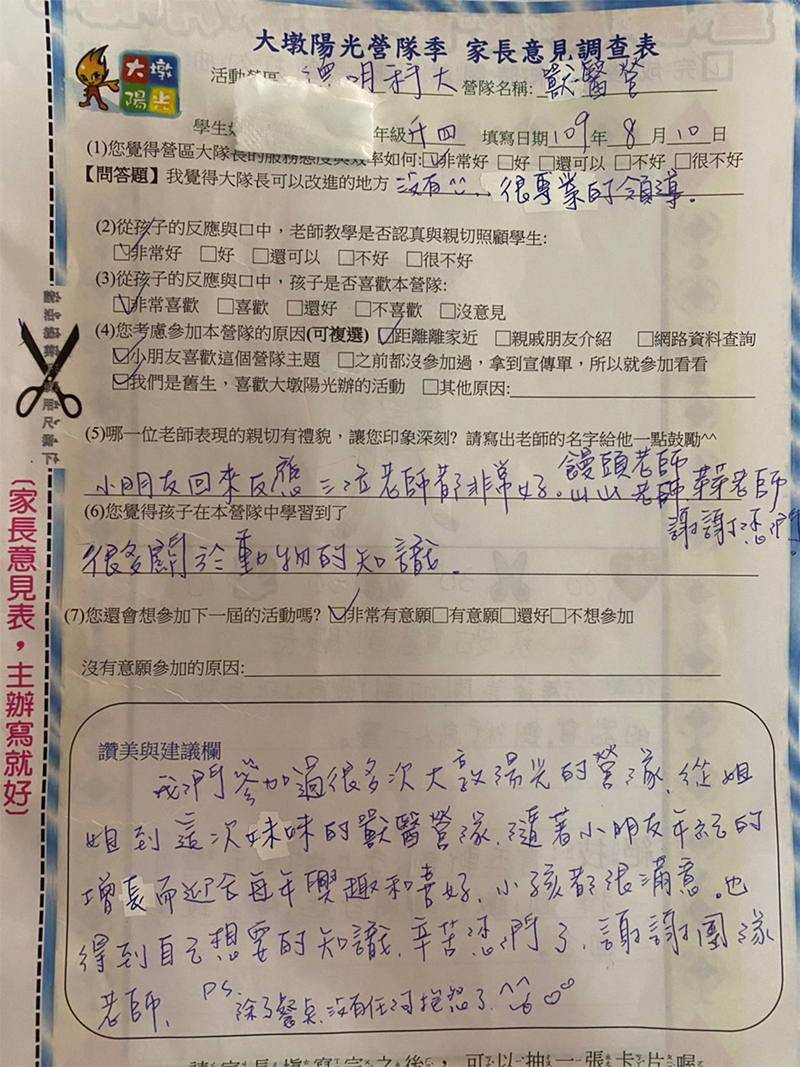 大墩陽光營隊季 家長意見調查表
大墩
陽光
活動營區 德明科大 營隊名稱: 獸醫營
學生 年級 升四 填寫日期 109 年 8 月 10 日
(1)您覺得營區大隊長的服務態度與效率如何:☑非常好 □好 □還可以 □不好 □很不好
【問答題】我覺得大隊長可以改進的地方 沒有^^.. 很專業的領導。
(2)從孩子的反應與口中，老師教學是否認真與親切照顧學生:
☑非常好 □好 □還可以 □不好 □很不好
(3)從孩子的反應與口中，孩子是否喜歡本營隊:
☑非常喜歡 □喜歡 □還好 □不喜歡 □沒意見
(4)您考慮參加本營隊的原因(可複選) ☑距離離家近 □親戚朋友介紹 □網路資料查詢
☑小朋友喜歡這個營隊主題 □之前都沒參加過，拿到宣傳單，所以就參加看看
☑我們是舊生，喜歡大墩陽光辦的活動 □其他原因:
(5)哪一位老師表現的親切有禮貌，讓您印象深刻? 請寫出老師的名字給他一點鼓勵^^
饅頭老師
小朋友回來反應 三位老師都非常好。山山老師 老師
謝謝您們。
(6)您覺得孩子在本營隊中學習到了
很多關於動物的知識。
(7)您還會想參加下一屆的活動嗎? ☑非常有意願□有意願□還好□不想參加
沒有意願參加的原因:
讚美與建議欄
我們參加過很多次大敦陽光的營隊，從姐
姐到這次妹妹的獸醫營隊，隨著小朋友年紀的
增長而迎合每年興趣和喜好，小孩都很滿意。也
得到自己想要的知識，辛苦您們了，謝謝團隊
老師， PS. 除了餐點，沒有任何抱怨了 ^^
請家長填寫完之後，可以抽一張卡片喔
〔家長意見表，主辦寫就好〕